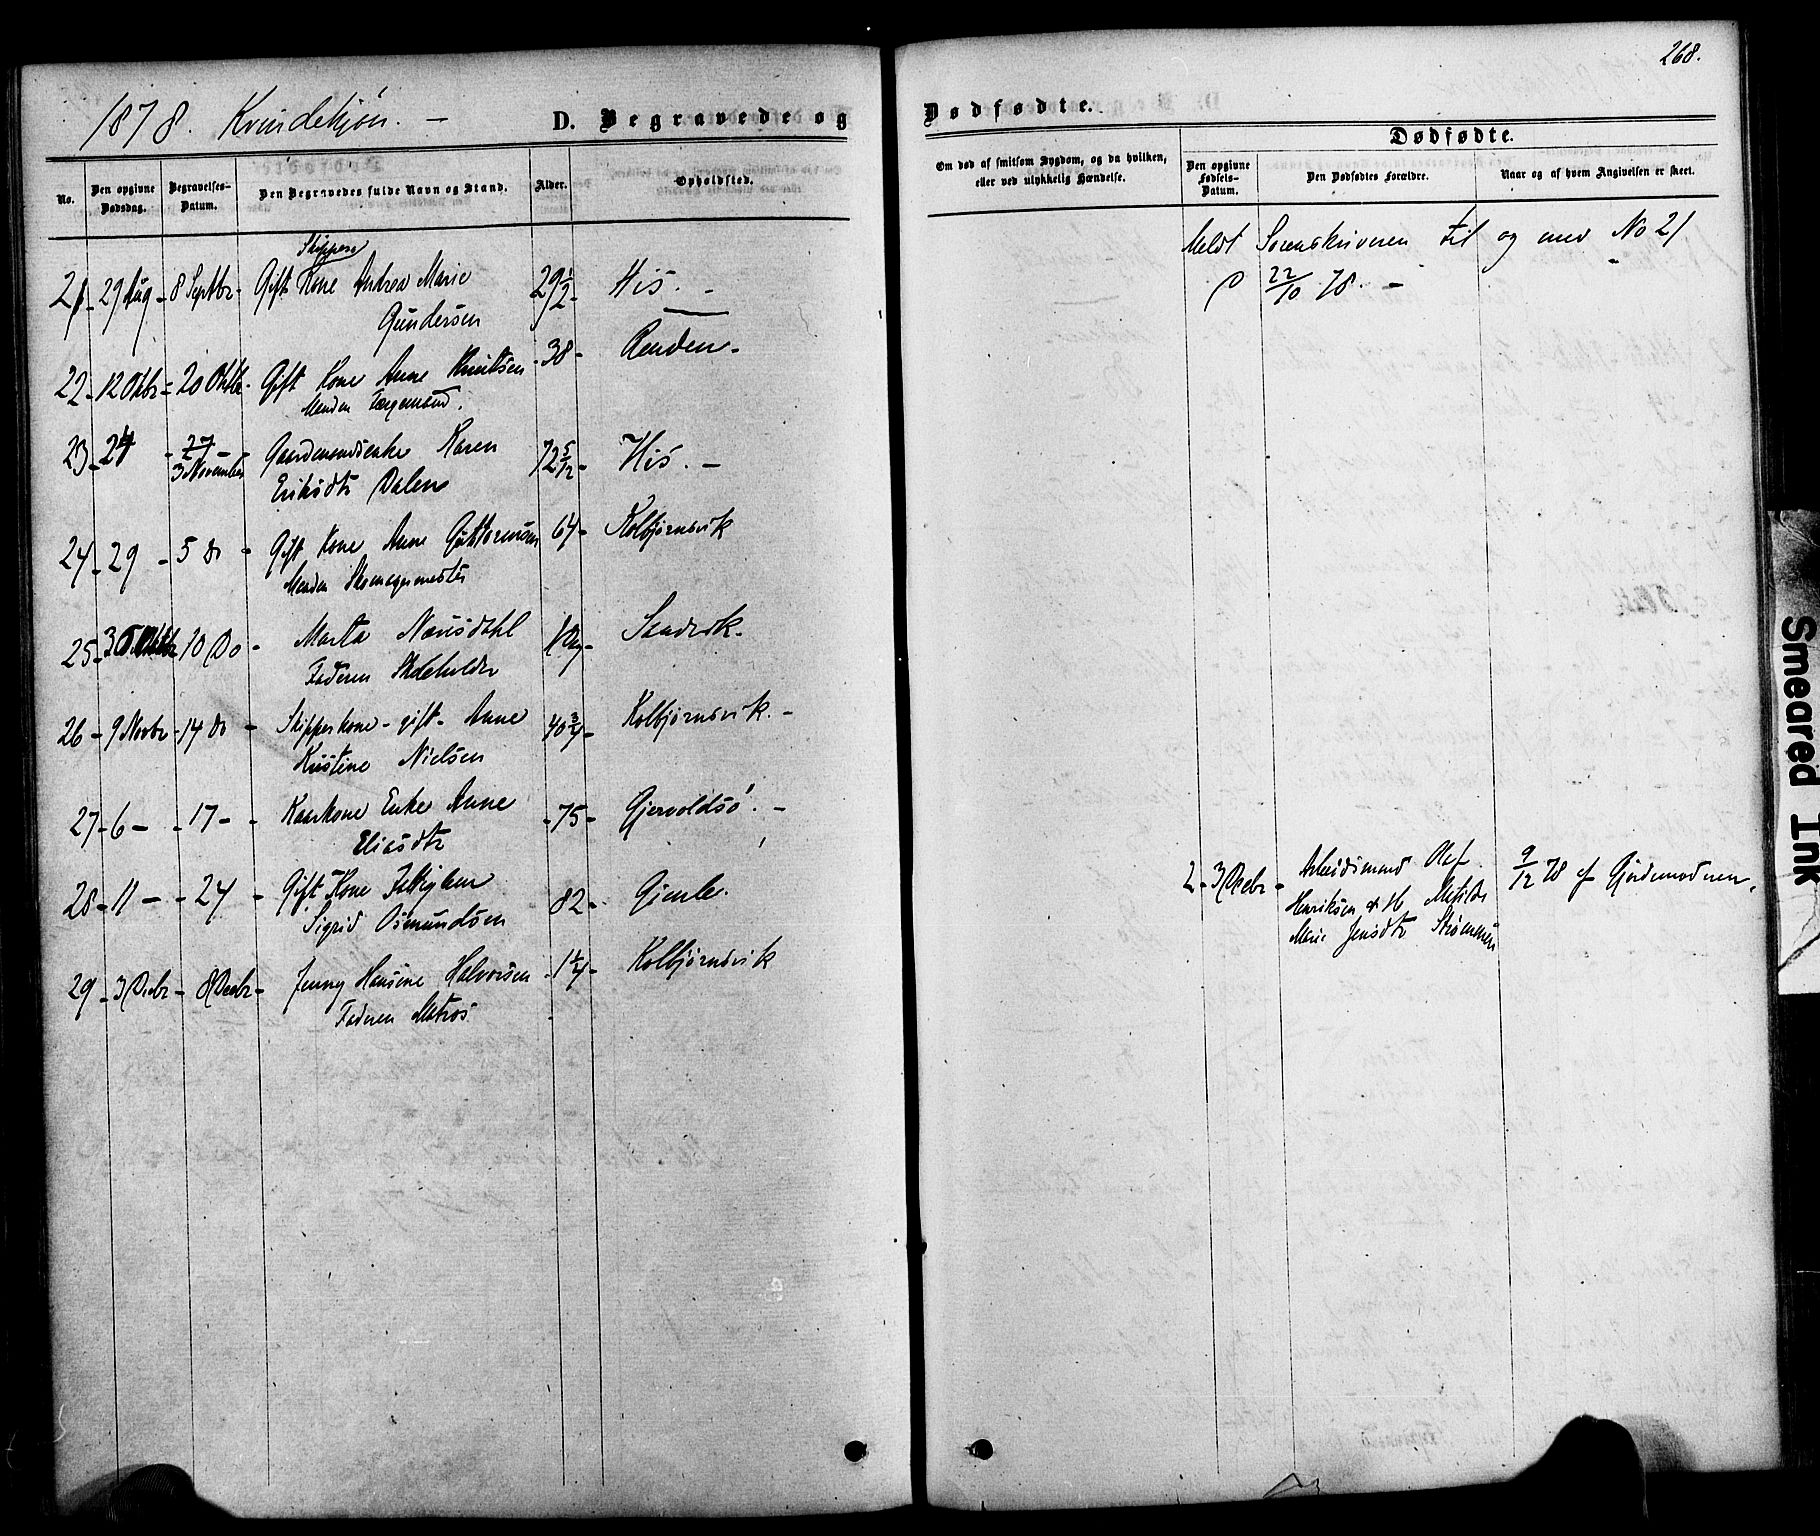 268.
1878. Kvindekjøn. — D. Begravede og Dødfødte.
No.
Den opgivne Dødsdag.
Begravelses-Datum.
Den Begravedes fulde Navn og Stand.
Alder.
Opholdsted.
Om død af smitsom Sygdom, og da hvilken, eller ved ulykkelig Hændelse.
Dødfødte.
Den opgivne Fødsels-Datum.
Den Dødfødtes Forældre.
Naar og af hvem Angivelsen er skeet.
Meldt Sorenskriveren til og med No 21
22/10 78. —
Skippers
21 - 29 Aug - 8 Septbr - Gift Kone Andrea Marie 29 1/2 - His. -
Gundersen
22 - 12 Oktbr - 20 Oktbr - Gift Kone Anne Knutsen - 38 -
Manden
23 - 24 - 27 - Gaardmandsenke Karen 72 5/12 - His. -
3 November Eriksdtr Dalen
24 - 29 - 5 Do - Gift Kone Anne Guttormsen 64 - Kolbjørnsvik
Manden Skomagermester
25 - 30 Oktbr 10 Do - Marta Næusdahl - Sandvik.
Faderen Skibsbuilder
26 - 9 Novbr - 14 Do - Skipperkone - gift - Anne 40 3/4 - Kolbjørnsvik. -
Kristine Nielsen
27 - 6 - - 17 - - Kaarkone Enke Anne - 75 - Gjervoldsø. -
Eliasdtr
28 - 11 - - 24 - Gift Kone - 82 - Gjenle.
Sigrid Osmundsen
2 - 3 Decbr - Arbeidsmand Olaf 9/12 78 af Gjordemoderen.
Henriksen & H Matilde
Marie Jensdtr Strømmen
29 - 3 Decbr - 8 Decbr - Jenny Hansine Halvorsen - 1 1/4 - Kolbjørnsvik
Faderen Matros
Smeared Ink